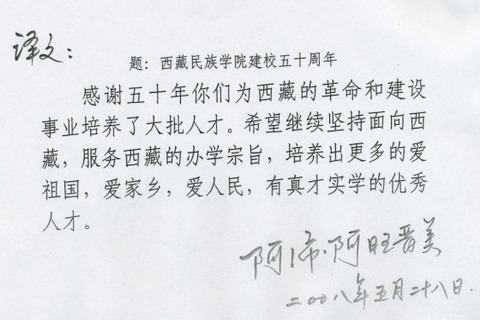 译文：
题：西藏民族学院建校五十周年
感谢五十年你们为西藏的革命和建设
事业培养了大批人才。希望继续坚持面向西
藏，服务西藏的办学宗旨，培养出更多的爱
祖国，爱家乡，爱人民，有真才实学的优秀
人才。
阿沛·阿旺晋美
二〇〇八年五月二十八日.